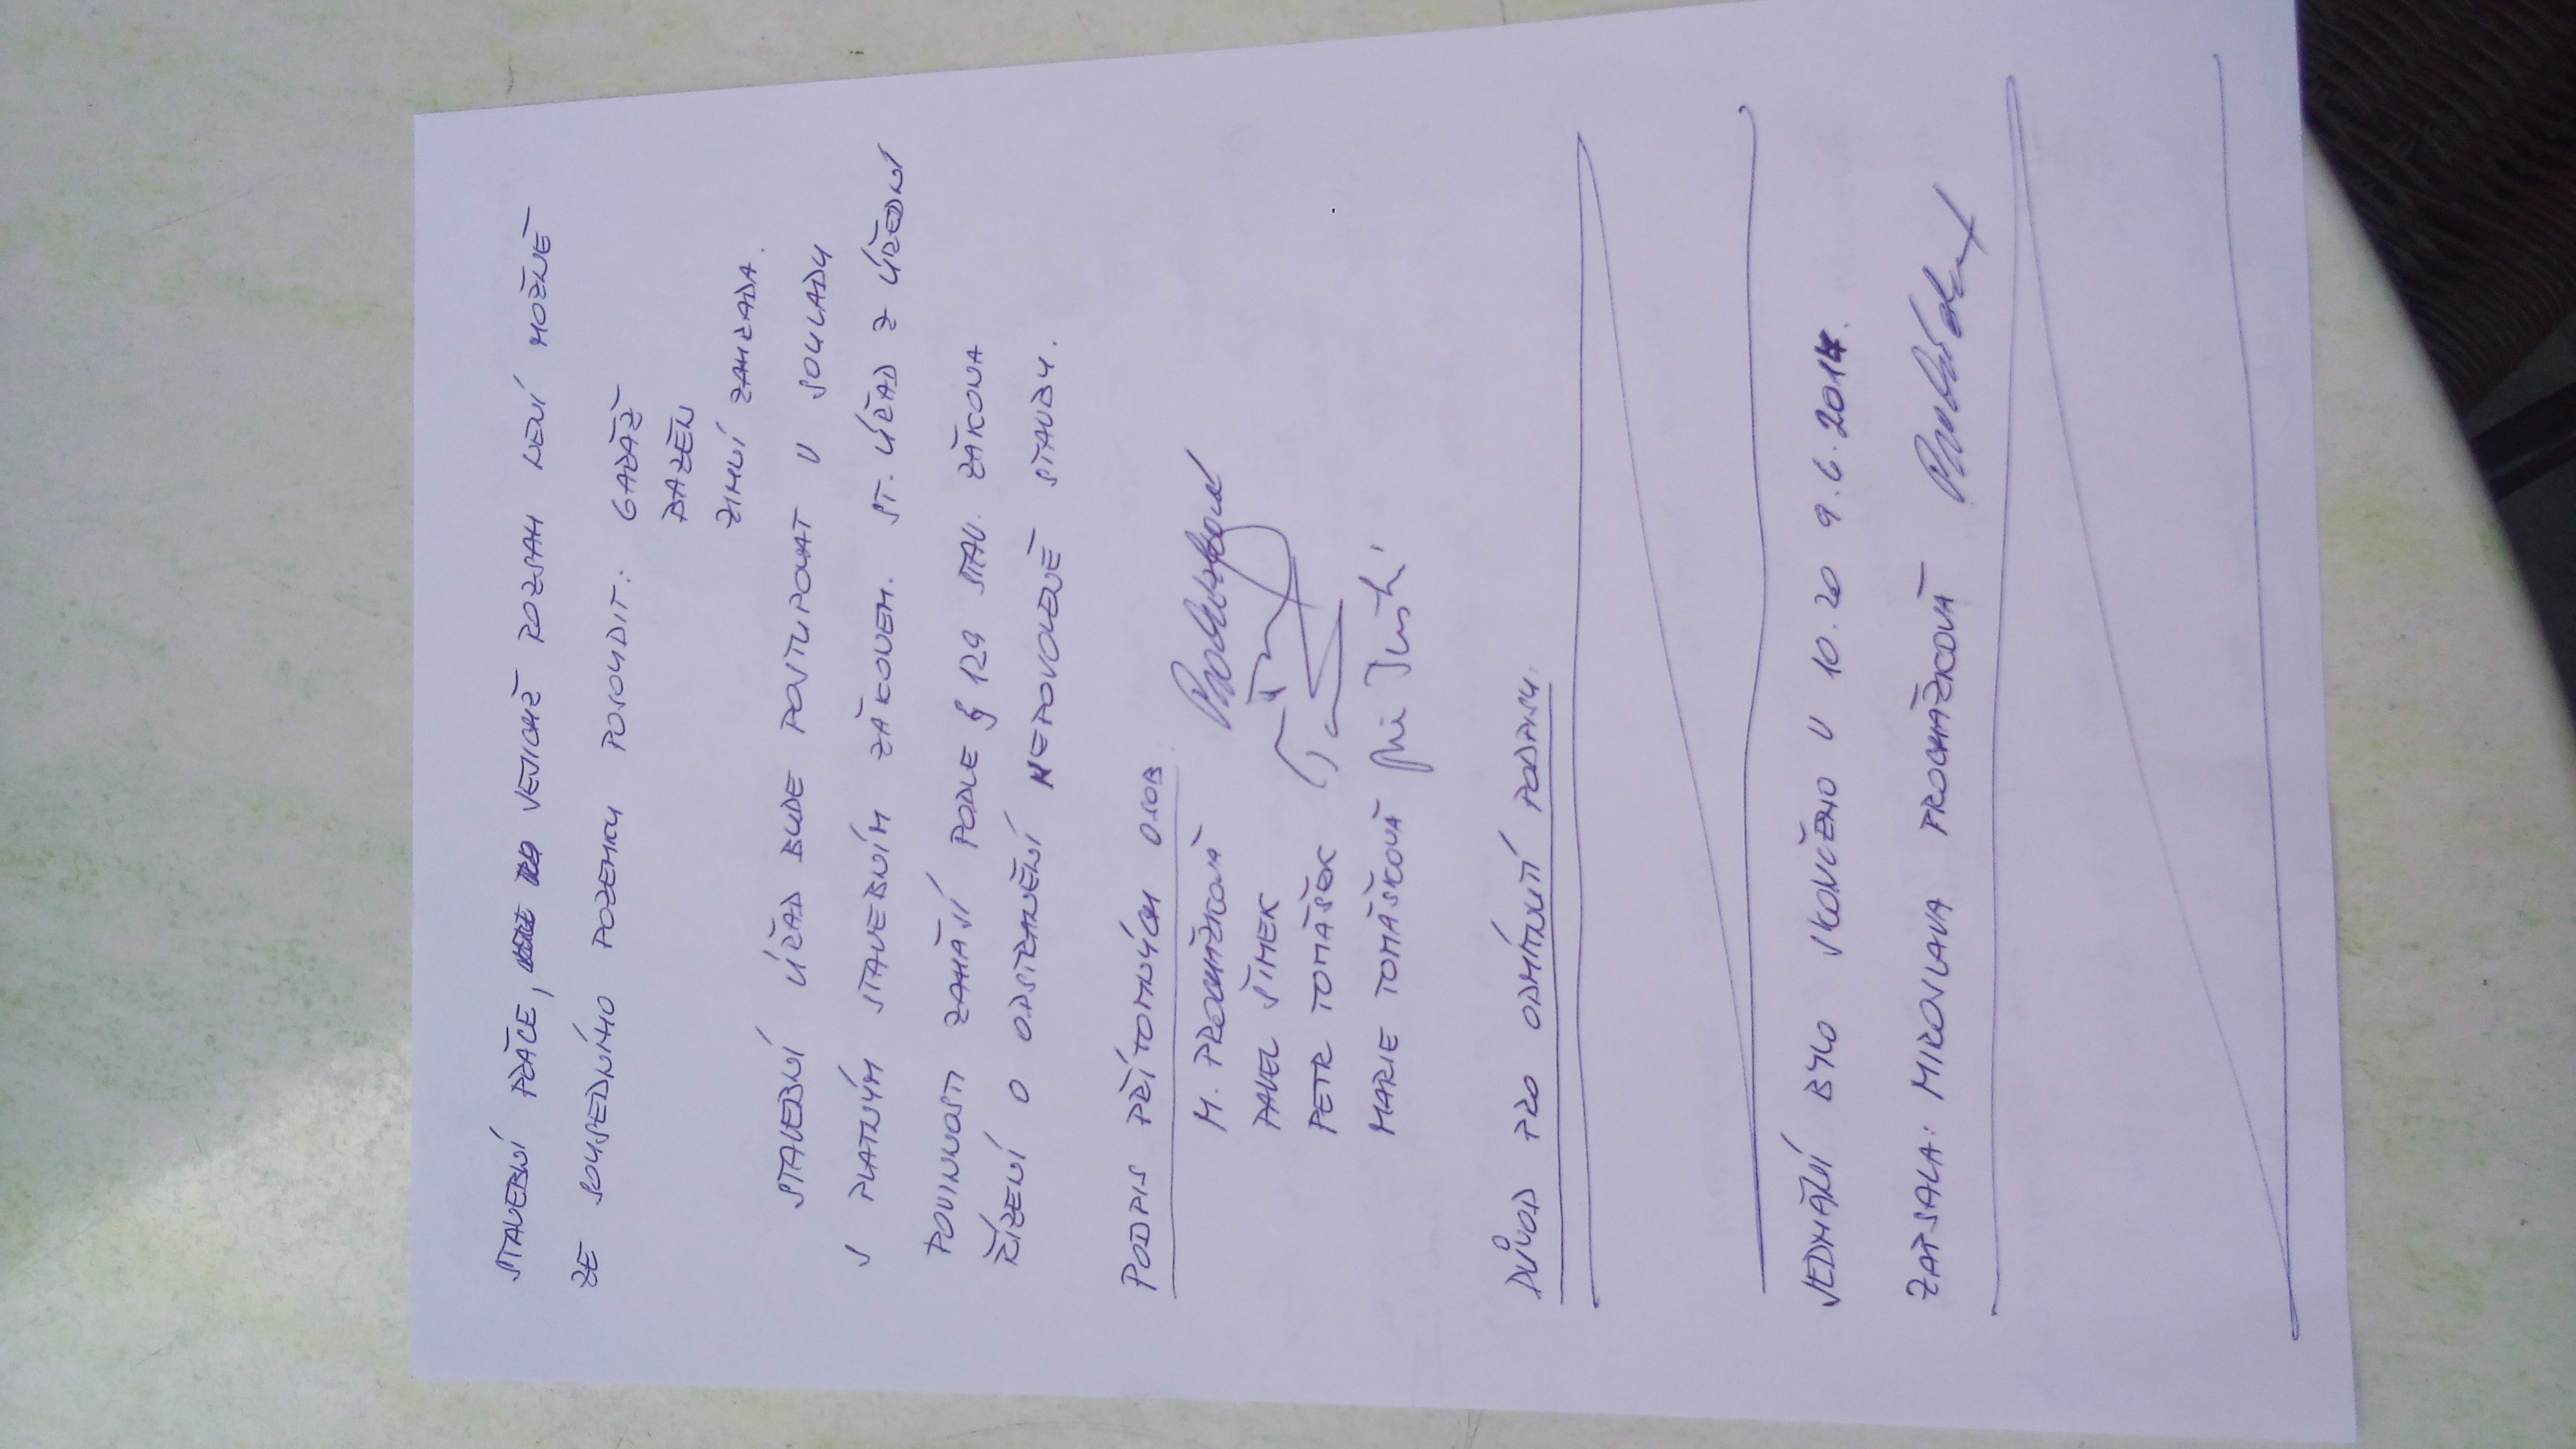 STAVEBNÍ PRÁCE, JEJICHŽ ROZSAH NENÍ MOŽNÉ
ZE SOUSEDNÍHO POZEMKU POSOUDIT: GARÁŽ
BAZÉN
ZIMNÍ ZAHRADA.
STAVEBNÍ ÚŘAD BUDE POSTUPOVAT V SOULADU
S PLATNÝM STAVEBNÍM ZÁKONEM. ST. ÚŘAD Z ÚŘEDNÍ
POVINNOSTI ZAHÁJÍ PODLE § 129 STAV. ZÁKONA
ŘÍZENÍ O ODSTRANĚNÍ NEPOVOLENÉ STAVBY.
PODPIS PŘÍTOMNÝCH OSOB
M. PROCHÁZKOVÁ
PAVEL ŠIMEK
PETR TOMÁŠEK
MARIE TOMÁŠKOVÁ
DŮVOD PRO ODMÍTNUTÍ PODPISU.
JEDNÁNÍ BYLO SKONČENO V 10.20 9.6.2014.
ZAPSALA: MIROSLAVA PROCHÁZKOVÁ